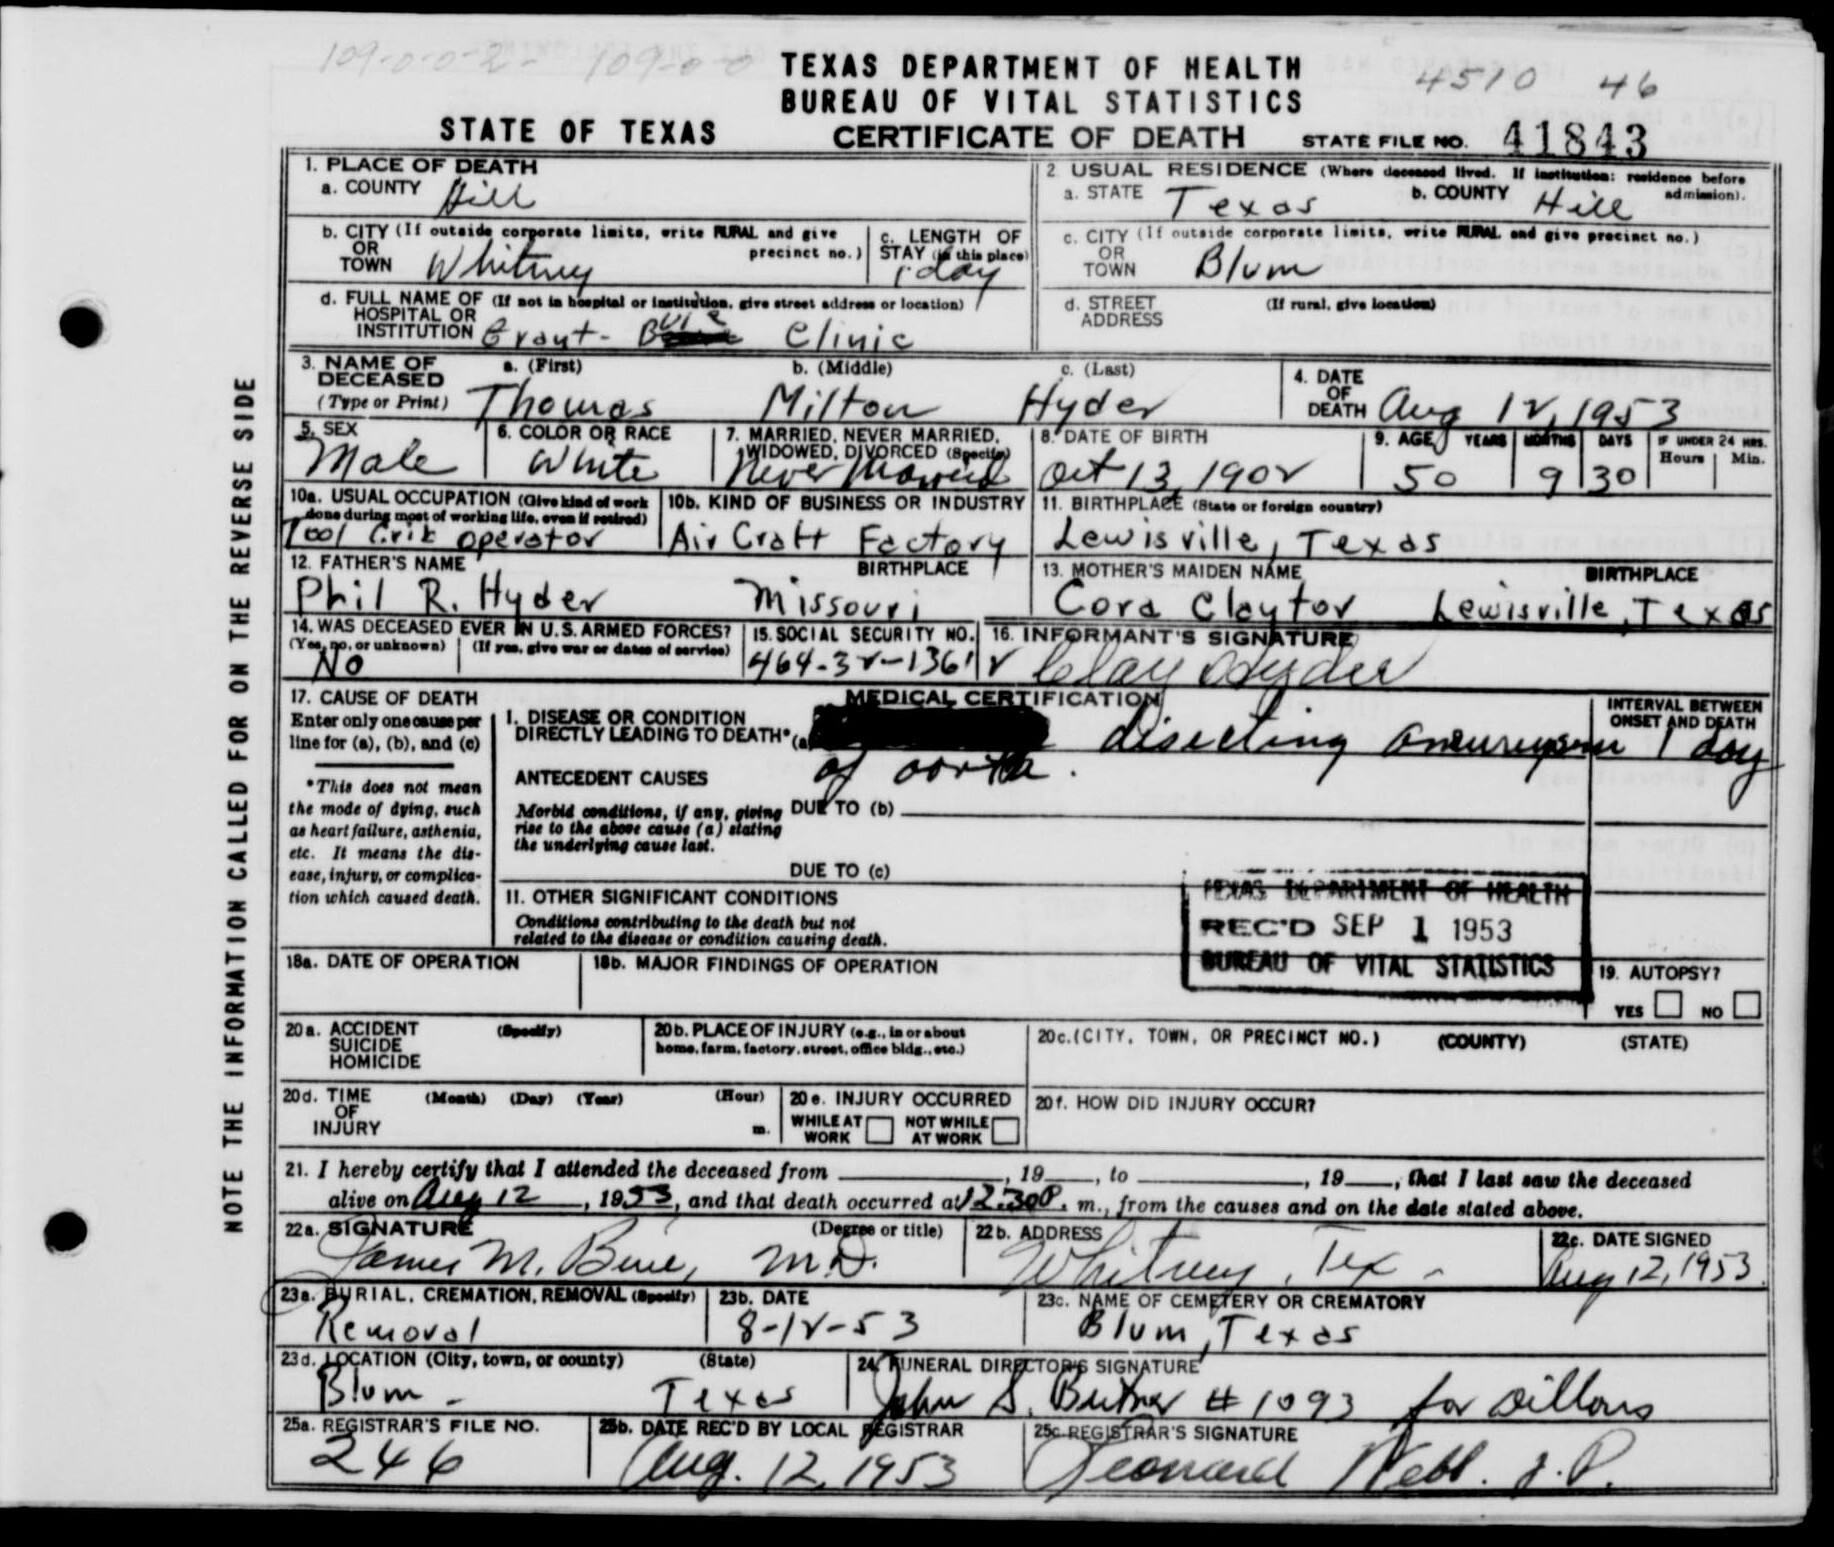 109-0-0-2- 109-0-0
TEXAS DEPARTMENT OF HEALTH
4510 46
BUREAU OF VITAL STATISTICS
STATE OF TEXAS CERTIFICATE OF DEATH STATE FILE NO. 41843
NOTE THE INFORMATION CALLED FOR ON THE REVERSE SIDE
1. PLACE OF DEATH
a. COUNTY Hill
2 USUAL RESIDENCE (Where deceased lived. If institution: residence before admission).
a. STATE Texas b. COUNTY Hill
b. CITY (If outside corporate limits, write RURAL and give precinct no.)
OR
TOWN Whitney
c. LENGTH OF
STAY (in this place)
1 day
c. CITY (If outside corporate limits, write RURAL and give precinct no.)
OR
TOWN Blum
d. FULL NAME OF (If not in hospital or institution, give street address or location)
HOSPITAL OR
INSTITUTION Grant- Buie Clinic
d. STREET (If rural, give location)
ADDRESS
3. NAME OF a. (First) b. (Middle) c. (Last)
DECEASED
(Type or Print) Thomas Milton Hyder
4. DATE
OF
DEATH Aug 12, 1953
5. SEX
Male
6. COLOR OR RACE
White
7. MARRIED, NEVER MARRIED,
WIDOWED, DIVORCED (Specify)
Never Married
8. DATE OF BIRTH
Oct 13, 1902
9. AGE YEARS MONTHS DAYS IF UNDER 24 HRS.
Hours Min.
50 9 30
10a. USUAL OCCUPATION (Give kind of work
done during most of working life, even if retired)
Tool Crib Operator
10b. KIND OF BUSINESS OR INDUSTRY
Air Craft Factory
11. BIRTHPLACE (State or foreign country)
Lewisville, Texas
12. FATHER'S NAME BIRTHPLACE
Phil R. Hyder Missouri
13. MOTHER'S MAIDEN NAME BIRTHPLACE
Cora Claytor Lewisville, Texas
14. WAS DECEASED EVER IN U.S. ARMED FORCES?
(Yes, no, or unknown) (If yes, give war or dates of service)
No
15. SOCIAL SECURITY NO.
464-32-1361
16. INFORMANT'S SIGNATURE
Clay Hyder
17. CAUSE OF DEATH
Enter only one cause per
line for (a), (b), and (c)
*This does not mean
the mode of dying, such
as heart failure, asthenia,
etc. It means the dis-
ease, injury, or complica-
tion which caused death.
MEDICAL CERTIFICATION
INTERVAL BETWEEN
ONSET AND DEATH
I. DISEASE OR CONDITION
DIRECTLY LEADING TO DEATH* (a) disecting aneurysm 1 day
of aorta.
ANTECEDENT CAUSES
Morbid conditions, if any, giving
rise to the above cause (a) stating
the underlying cause last.
DUE TO (b)
DUE TO (c)
II. OTHER SIGNIFICANT CONDITIONS
Conditions contributing to the death but not
related to the disease or condition causing death.
TEXAS DEPARTMENT OF HEALTH
REC'D SEP 1 1953
BUREAU OF VITAL STATISTICS
18a. DATE OF OPERATION
18b. MAJOR FINDINGS OF OPERATION
19. AUTOPSY?
YES NO
20a. ACCIDENT (Specify)
SUICIDE
HOMICIDE
20b. PLACE OF INJURY (e.g., in or about
home, farm, factory, street, office bldg., etc.)
20c. (CITY, TOWN, OR PRECINCT NO.) (COUNTY) (STATE)
20d. TIME (Month) (Day) (Year) (Hour)
OF
INJURY m.
20e. INJURY OCCURRED
WHILE AT WORK NOT WHILE AT WORK
20f. HOW DID INJURY OCCUR?
21. I hereby certify that I attended the deceased from , 19 , to , 19 , that I last saw the deceased
alive on Aug 12 , 1953, and that death occurred at 12:30P. m., from the causes and on the date stated above.
22a. SIGNATURE (Degree or title)
James M. Buie, M.D.
22b. ADDRESS
Whitney, Tex -
22c. DATE SIGNED
Aug 12, 1953.
23a. BURIAL, CREMATION, REMOVAL (Specify)
Removal
23b. DATE
8-12-53
23c. NAME OF CEMETERY OR CREMATORY
Blum, Texas
23d. LOCATION (City, town, or county) (State)
Blum - Texas
24. FUNERAL DIRECTOR'S SIGNATURE
John S. # 1093 for Dillons
25a. REGISTRAR'S FILE NO.
246
25b. DATE REC'D BY LOCAL REGISTRAR
Aug. 12, 1953
25c. REGISTRAR'S SIGNATURE
Leonard Webb. J.P.